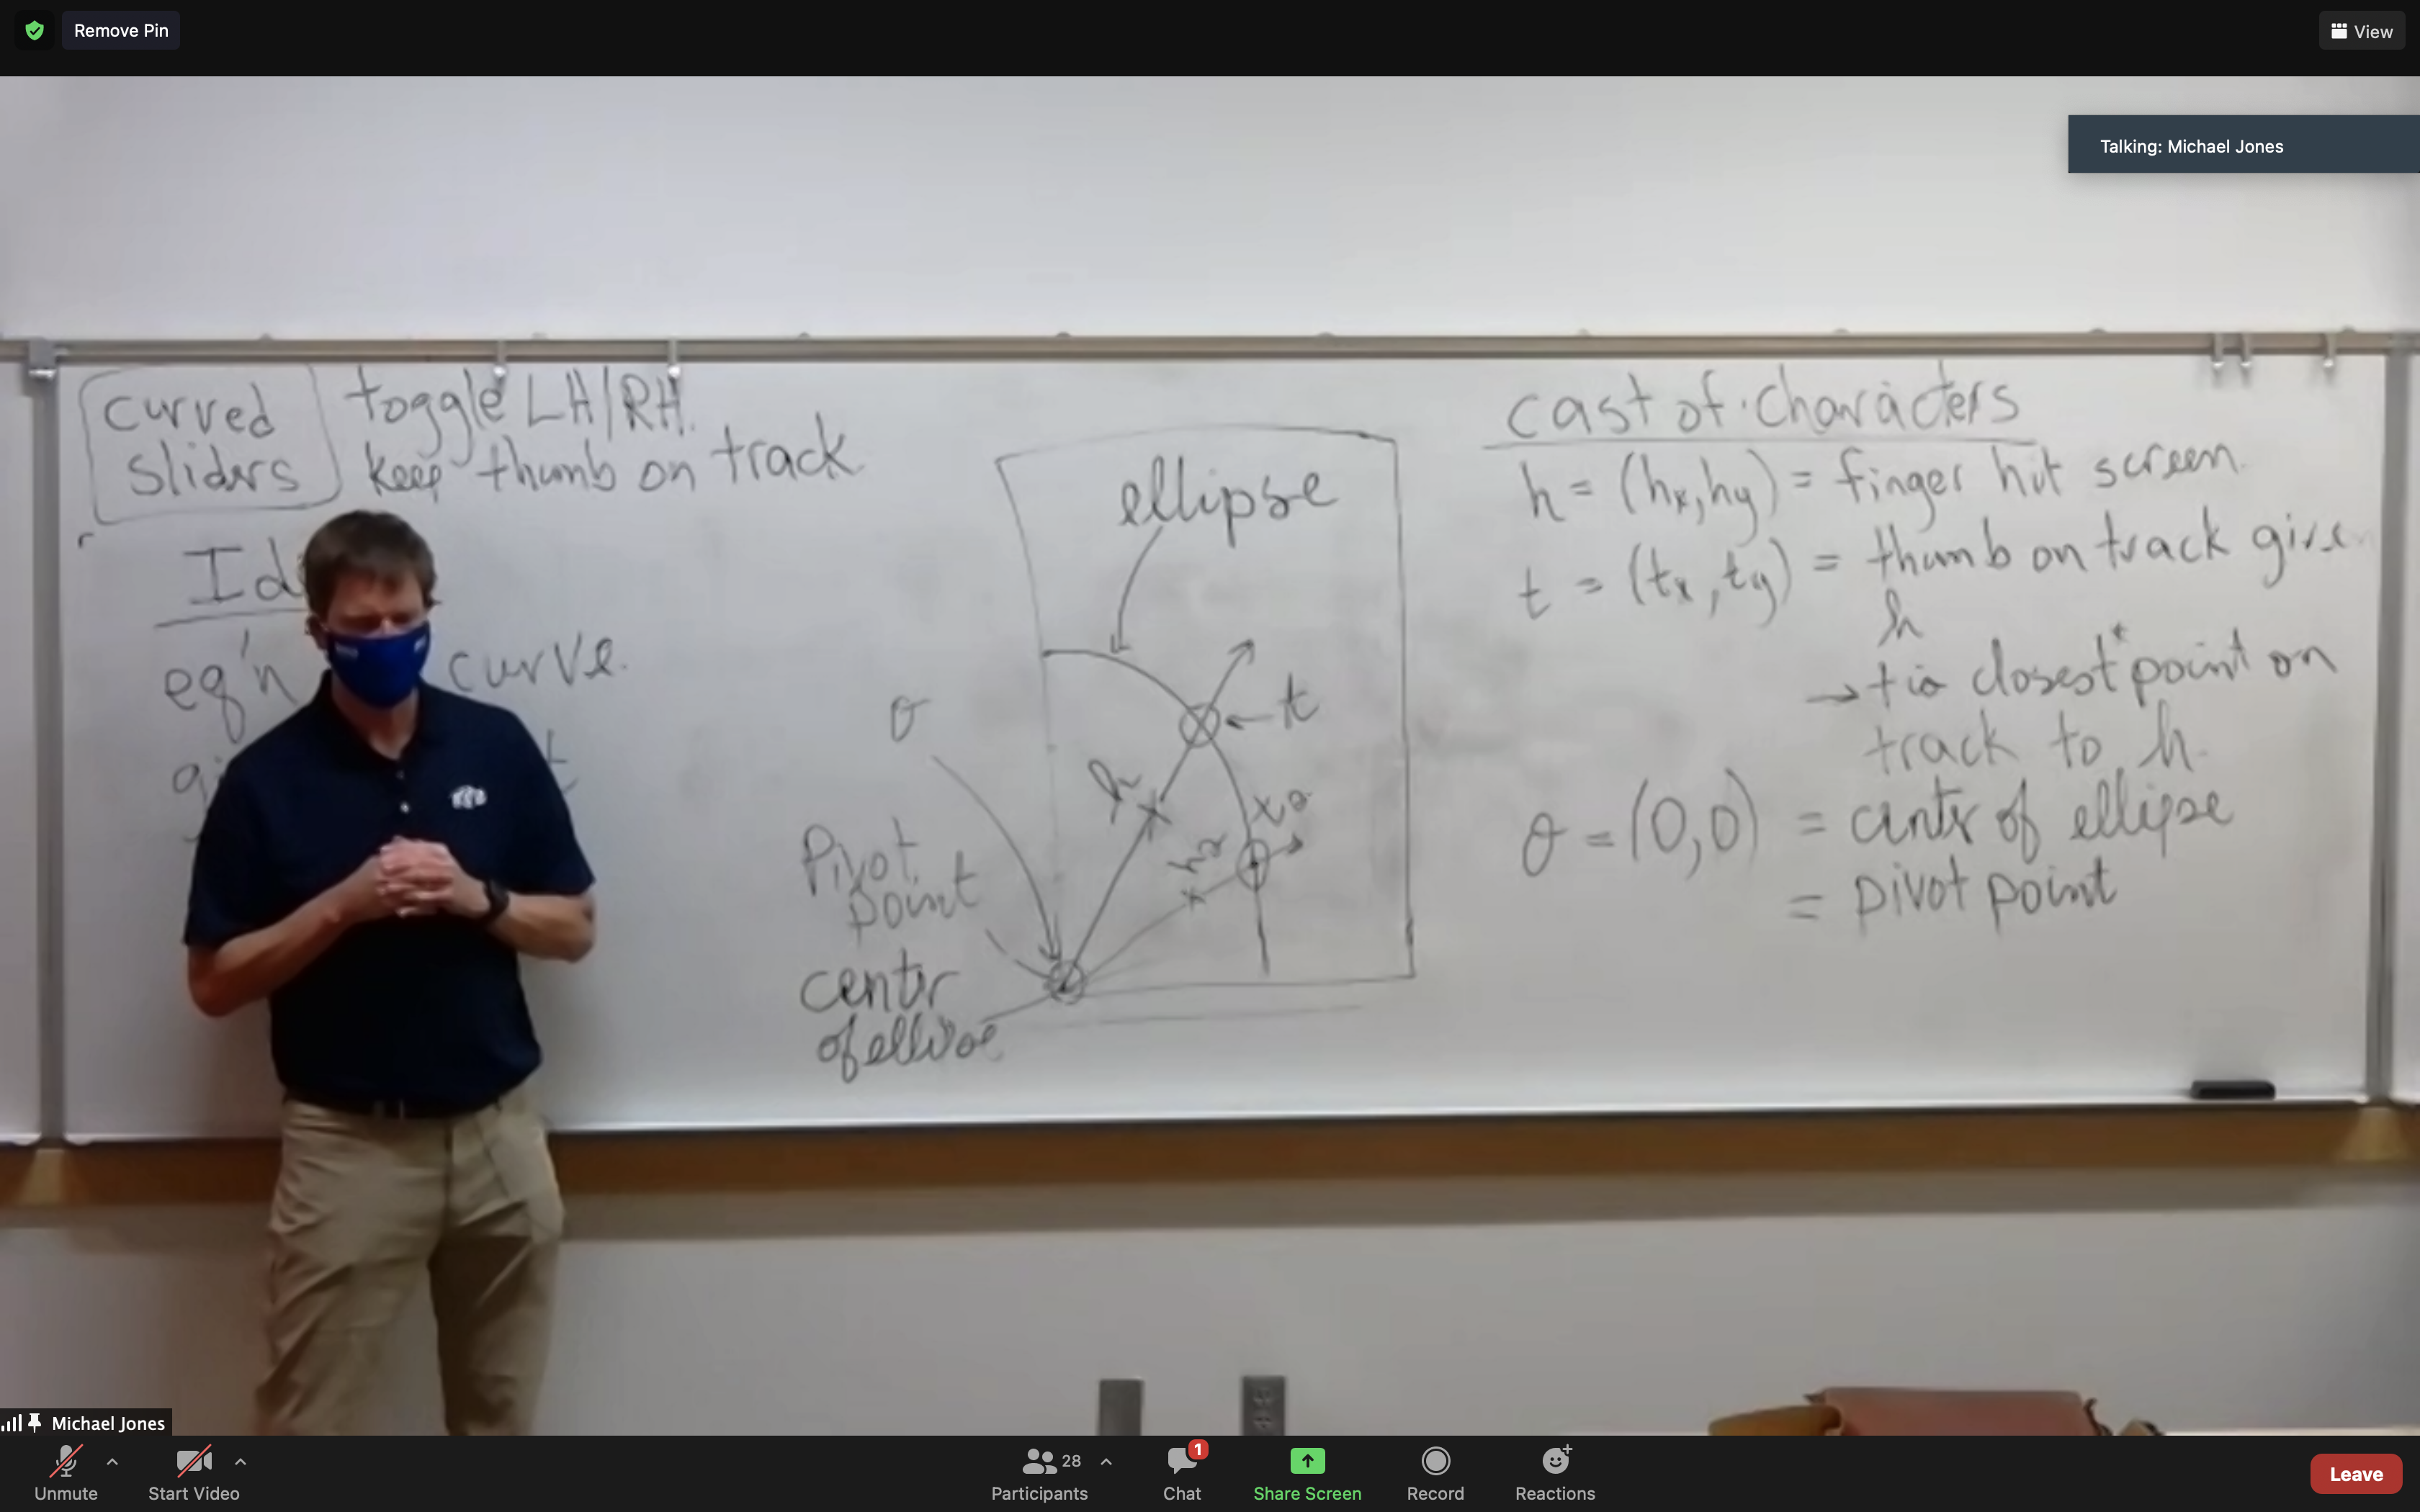 Remove Pin
View
Talking: Michael Jones
curved
sliders
toggle LH/RH.
keep thumb on track
Id
eq'n
curve.
gi
t
ellipse
σ
t
h
x
Pivot
point
center
of ellipse
cast of characters
h = (hx, hy) = finger hit screen.
t = (tx, ty) = thumb on track give
h
→ t is closest* point on
track to h.
σ = (0,0) = center of ellipse
= pivot point
Michael Jones
Unmute
Start Video
28
Participants
1
Chat
Share Screen
Record
Reactions
Leave